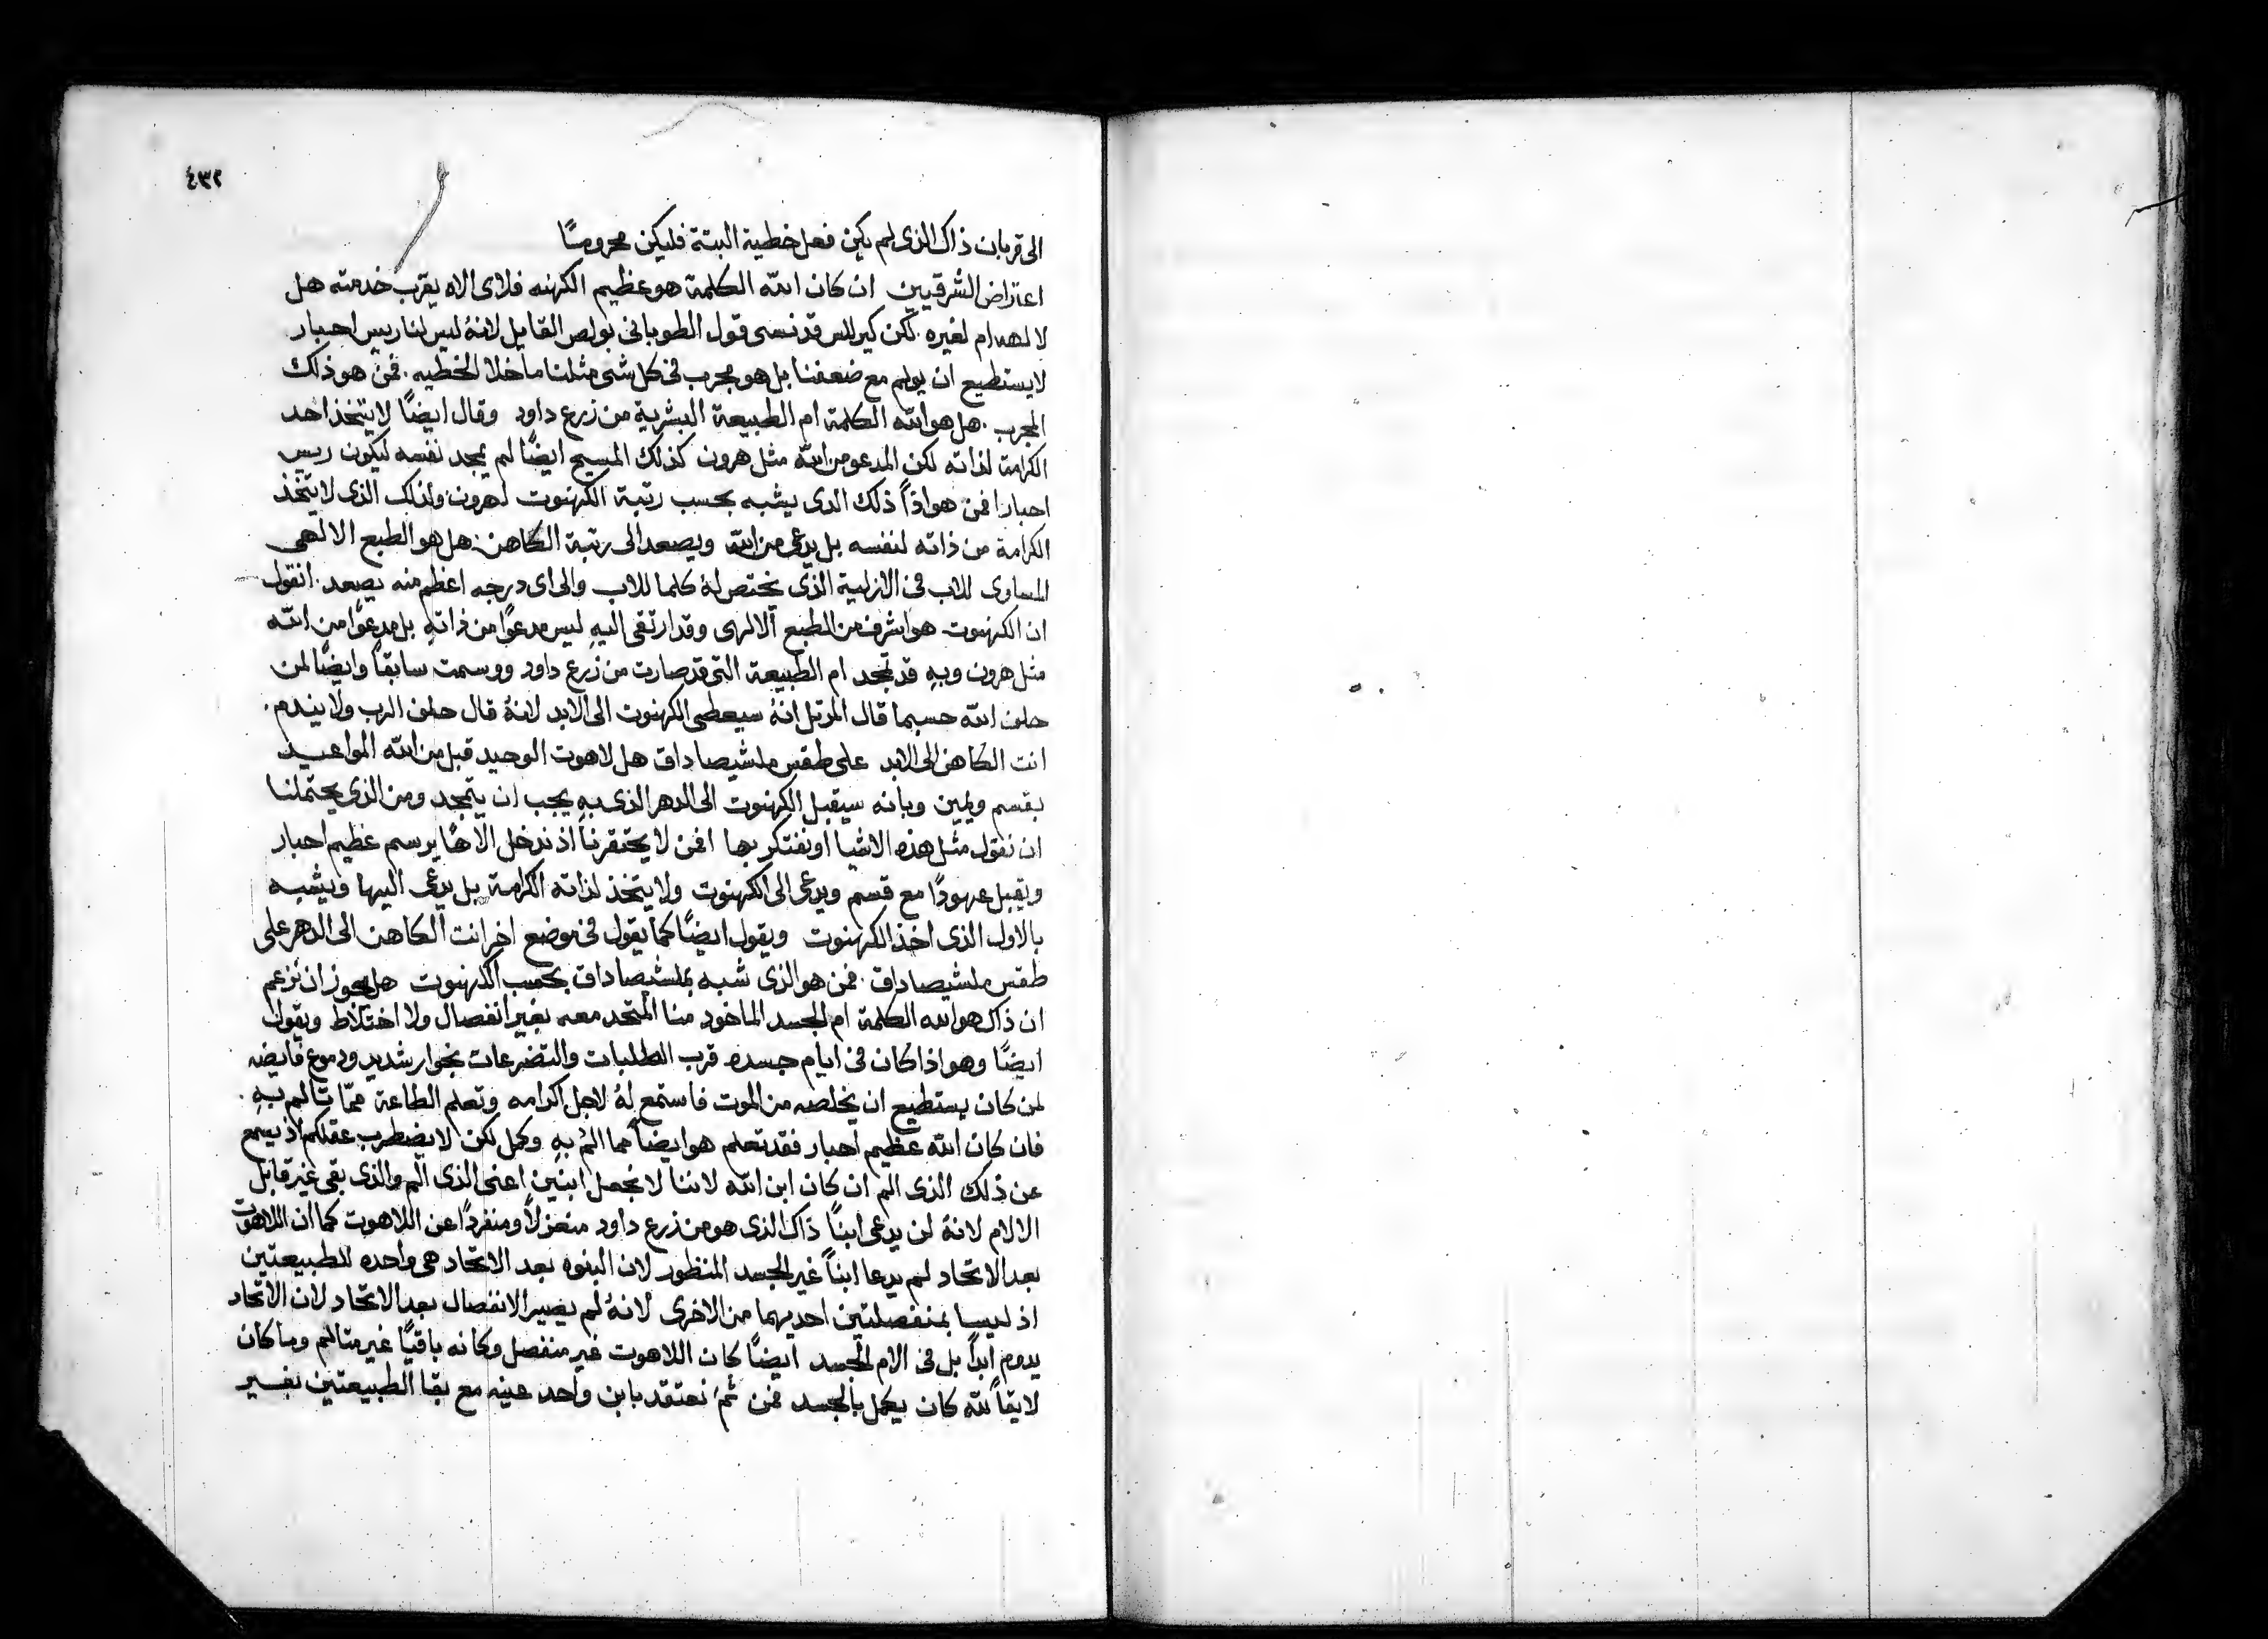 ٤٣٢
الى قربان ذاك الذى لم يكن فعل خطية البتة فليكن محرومًا
اعتراض الشرقيين ان كان الله الكلمة هو عظيم الكهنه فلاى الاه يقرب خدمته هل
لالهه ام لغيره . لكن كيرلس قد نسى قول الطوبانى بولص القايل لانهُ ليس لنا ريس احبار
لا يستطيع ان يولم مع ضعفنا بل هو مجرب فى كل شى مثلنا ما خلا الخطيه . فمن هو ذلك
المجرب . هل هو الله الكلمة ام الطبيعة البشرية من زرع داود وقال ايضًا لا يتخذ احد
الكرامة لذاته لكن المدعو من الله مثل هرون كذلك المسيح ايضًا لم يمجد نفسه ليكون ريس
احبار افمن هو اذًا ذلك الدى يشبه بحسب رتبة الكهنوت لهرون وذلك الذى لا يتخذ
الكرامة من ذاته لنفسه بل يدعى من الله ويصعد الى رتبة الكاهن . هل هو الطبع الالهى
المساوى للاب فى الازلية الذى يختص لهُ كلما للاب والى اى درجه اعظم منه يصعد . انقول
ان الكهنوت هو اشرف من الطبع الالهى وقد ارتقى اليهِ ليس مدعوًا من ذاتهِ بل مدعوًا من الله
مثل هرون وبهِ قد تمجد ام الطبيعة التى قد صارت من زرع داود ووسمت سابقًا وايضًا لمن
حلف الله حسبما قال المرتل انهُ سيعطى الكهنوت الى الابد لانهُ قال حلف الرب ولا يندم .
انت الكاهن الى الابد على طقس ملشيصاداق هل لاهوت الوحيد قبل من الله المواعيد
بقسم ويمين وبانه سيقبل الكهنوت الى الدهر الذى بهِ يجب ان يتمجد ومن الذى يحتملنا
ان نقول مثل هذه الاشيا او نفتكر بها افمن لا يحتقرنا اذ ندخل الاهًا يرسم عظيم احبار
ويقبل عهودًا مع قسم ويدعى الى الكهنوت ولا يتخذ لذاته الكرامة بل يدعى اليها ويشبه
بالاول الذى اخذ الكهنوت ويقول ايضًا كما يقول فى موضع اخر انت الكاهن الى الدهر على
طقس ملشيصاداق . فمن هو الذى شبه بملشيصاداق بحسب الكهنوت هل يجوز ان نزعم
ان ذاك هو الله الكلمة ام الجسد الماخود منا المتحد معه بغير انفصال ولا اختلاط ويقول
ايضًا وهو اذا كان فى ايام جسده قرب الطلبات والتضرعات بجوار شديد ودموع فايضه
لمن كان يستطيع ان يخلصه من الموت فاستمع لهُ لاجل اكرامه وتعلم الطاعة ممّا تالم بهِ .
فان كان الله عظيم احبار فقد تعلم هو ايضًا مما المُ بهِ وكمل لكن لا يضطرب عقلكم اذ يسمع
عن ذلك الذى الم ان كان ابن الله لاننا لا نجعل ابنين اعنى الذى الم والذى بقى غير قابل
الالام لانهُ لن يدعى ابنًا ذاك الذى هو من زرع داود منعزلًا ومنفردًا عن اللاهوت كما ان اللاهوت
بعد الاتحاد لم يدعا ابنًا غير الجسد المنظور لان البنوه بعد الاتحاد هى واحده للطبيعتين
اذ ليسا بمنفصلتين احديهما من الاخرى لانهُ لم يصير الانفصال بعد الاتحاد لان الاتحاد
يدوم ابدًا بل فى الام الجسد ايضًا كان اللاهوت غير منفصل وكانه باقيًا غير متالم وما كان
لايقًا لله كان يعمل بالجسد فمن ثمُ نعتقد بابن واحد عينه مع بقا الطبيعتين بغير